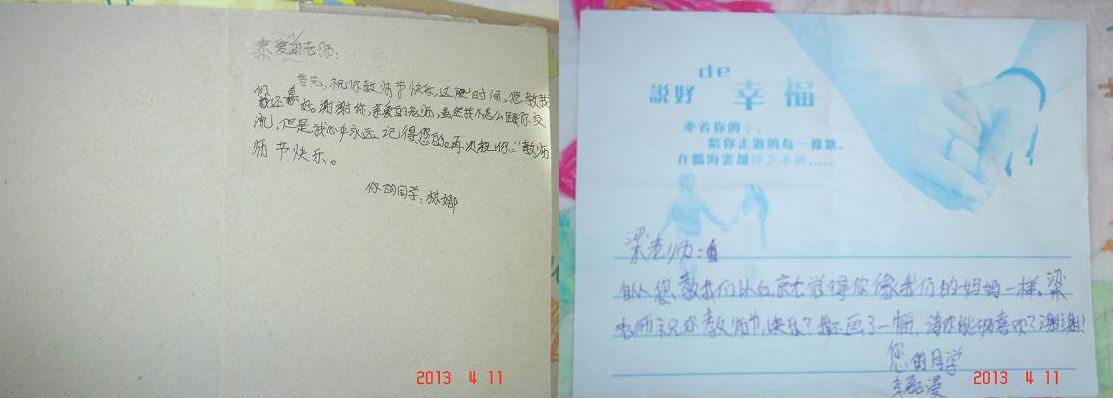 亲爱的老师:
首先,祝你教师节快乐,这段时间,您教我
最还好,谢谢你,亲爱的老师,虽然我不怎么跟你交
流,但是我心中永远记得您的。再次祝你:“教师
师节快乐。
你的同学:林娜
2013 4 11
de
説好 幸福
牽着你的手,
陪你走過的每一條路,
在腦海裏都
梁老师:
自从您教我们以后,就觉得你像我们的妈妈一样,梁
老师祝你教师节快乐?我还画了一幅,请你能够喜欢?谢谢!
您的同学
漫
2013 4 11